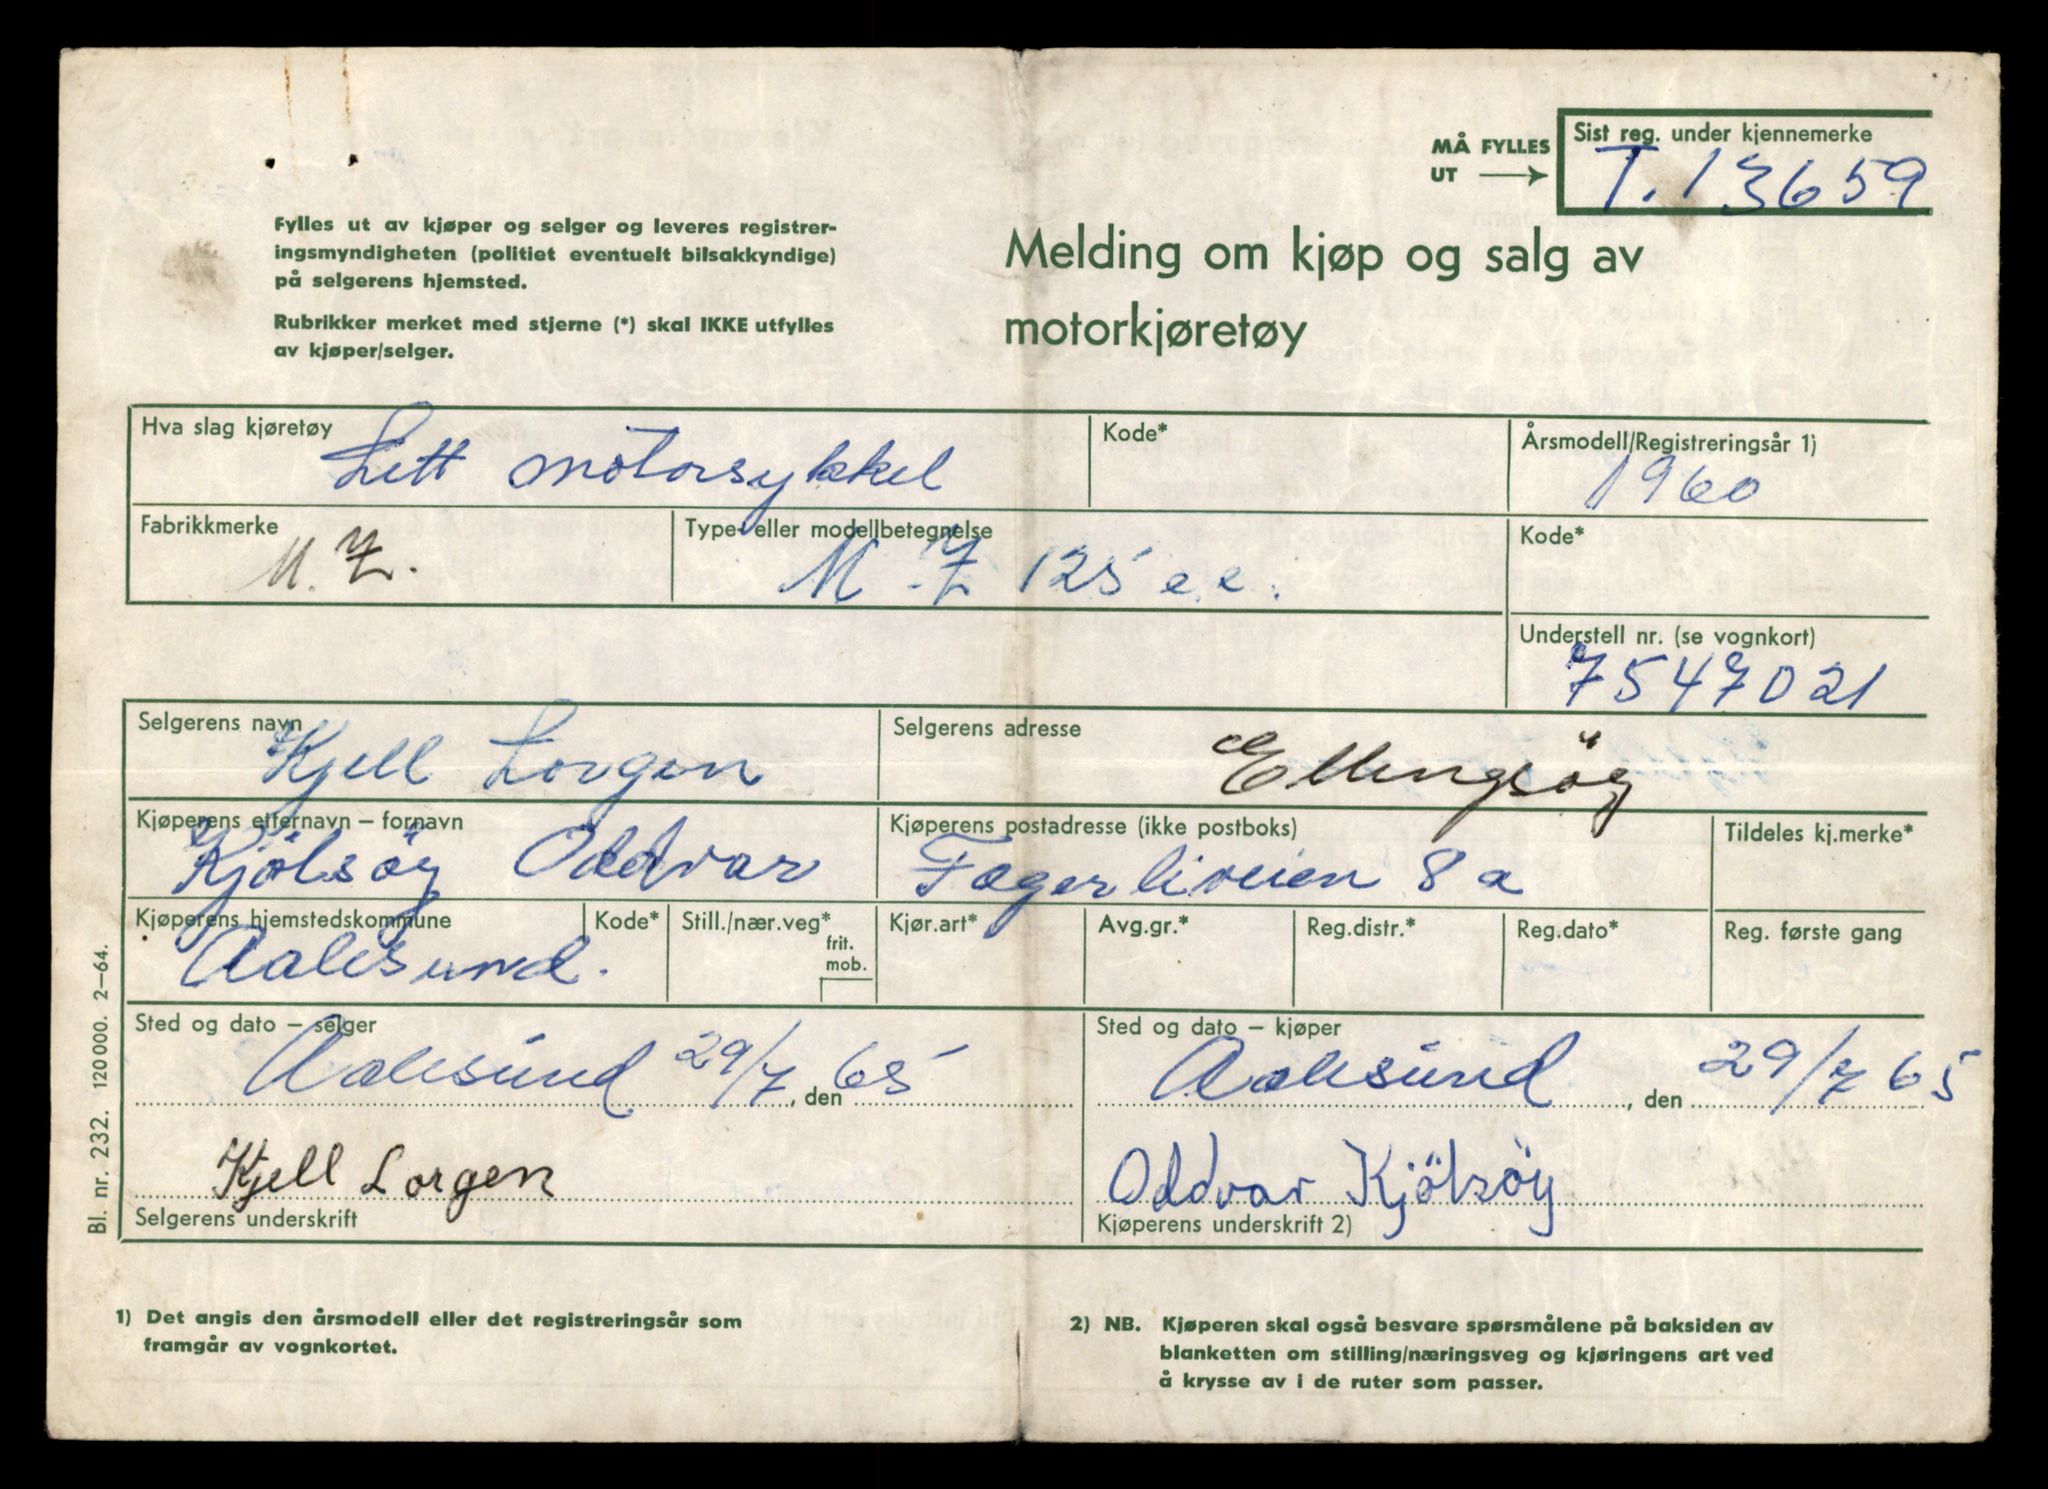 MÅ FYLLES
UT
Sist reg. under kjennemerke
T. 13659
Fylles ut av kjøper og selger og leveres registrer-
ingsmyndigheten (politiet eventuelt bilsakkyndige)
på selgerens hjemsted.
Rubrikker merket med stjerne (*) skal IKKE utfylles
av kjøper/selger.
Melding om kjøp og salg av
motorkjøretøy
Hva slag kjøretøy
Lett motorsykkel
Kode*
Årsmodell/Registreringsår 1)
1960
Fabrikkmerke
M.Z.
Type- eller modellbetegnelse
M.Z 125 c.c.
Kode*
Understell nr. (se vognkort)
7547021
Selgerens navn
Kjell Lorgen
Selgerens adresse
Ellingsöy
Kjøperens etternavn – fornavn
Kjölsöy Oddvar
Kjøperens postadresse (ikke postboks)
Fagerliveien 8a
Tildeles kj.merke*
Kjøperens hjemstedskommune
Aalesund.
Kode*
Still./nær.veg*
frit.
mob.
Kjør.art*
Avg.gr.*
Reg.distr.*
Reg.dato*
Reg. første gang
Sted og dato – selger
Aalesund 29/7, den 65
Sted og dato – kjøper
Aalesund, den 29/7 65
Kjell Lorgen
Selgerens underskrift
Oddvar Kjölsöy
Kjøperens underskrift 2)
Bl. nr. 232. 120 000. 2–64.
1) Det angis den årsmodell eller det registreringsår som
framgår av vognkortet.
2) NB. Kjøperen skal også besvare spørsmålene på baksiden av
blanketten om stilling/næringsveg og kjøringens art ved
å krysse av i de ruter som passer.